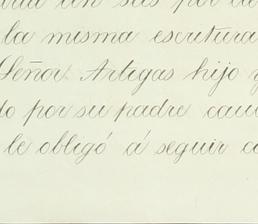 un seis por
la misma escritura
Señor Artigas hijo y
do por su padre cau
le obligó á seguir co